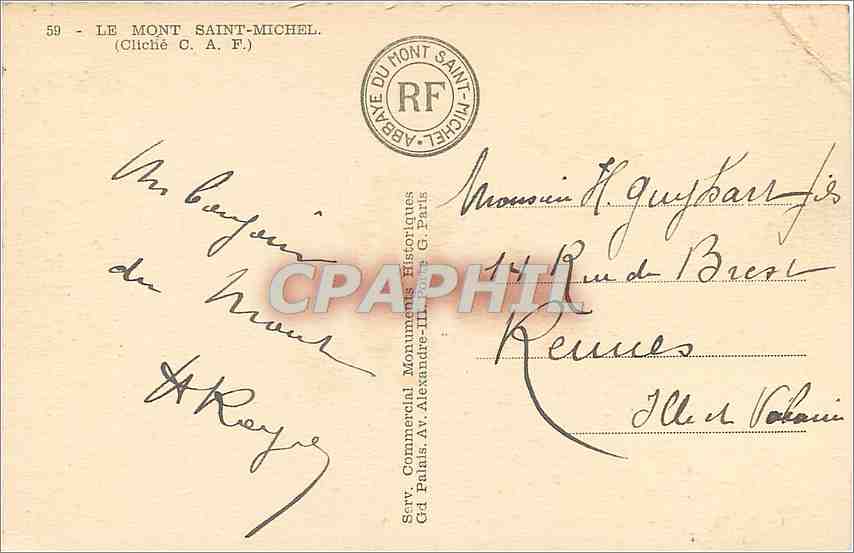 59 - LE MONT SAINT-MICHEL.
(Cliché C. A. F.)
ABBAYE DU MONT SAINT-MICHEL
RF
Un bonjour
du Mont
Monsieur H. Guyhart fils
14 Rue de Brest
Rennes
Ille et Vilaine
Serv. Commercial Monuments Historiques
Gd Palais. Av. Alexandre-III. Porte G. Paris
CPAPHIL